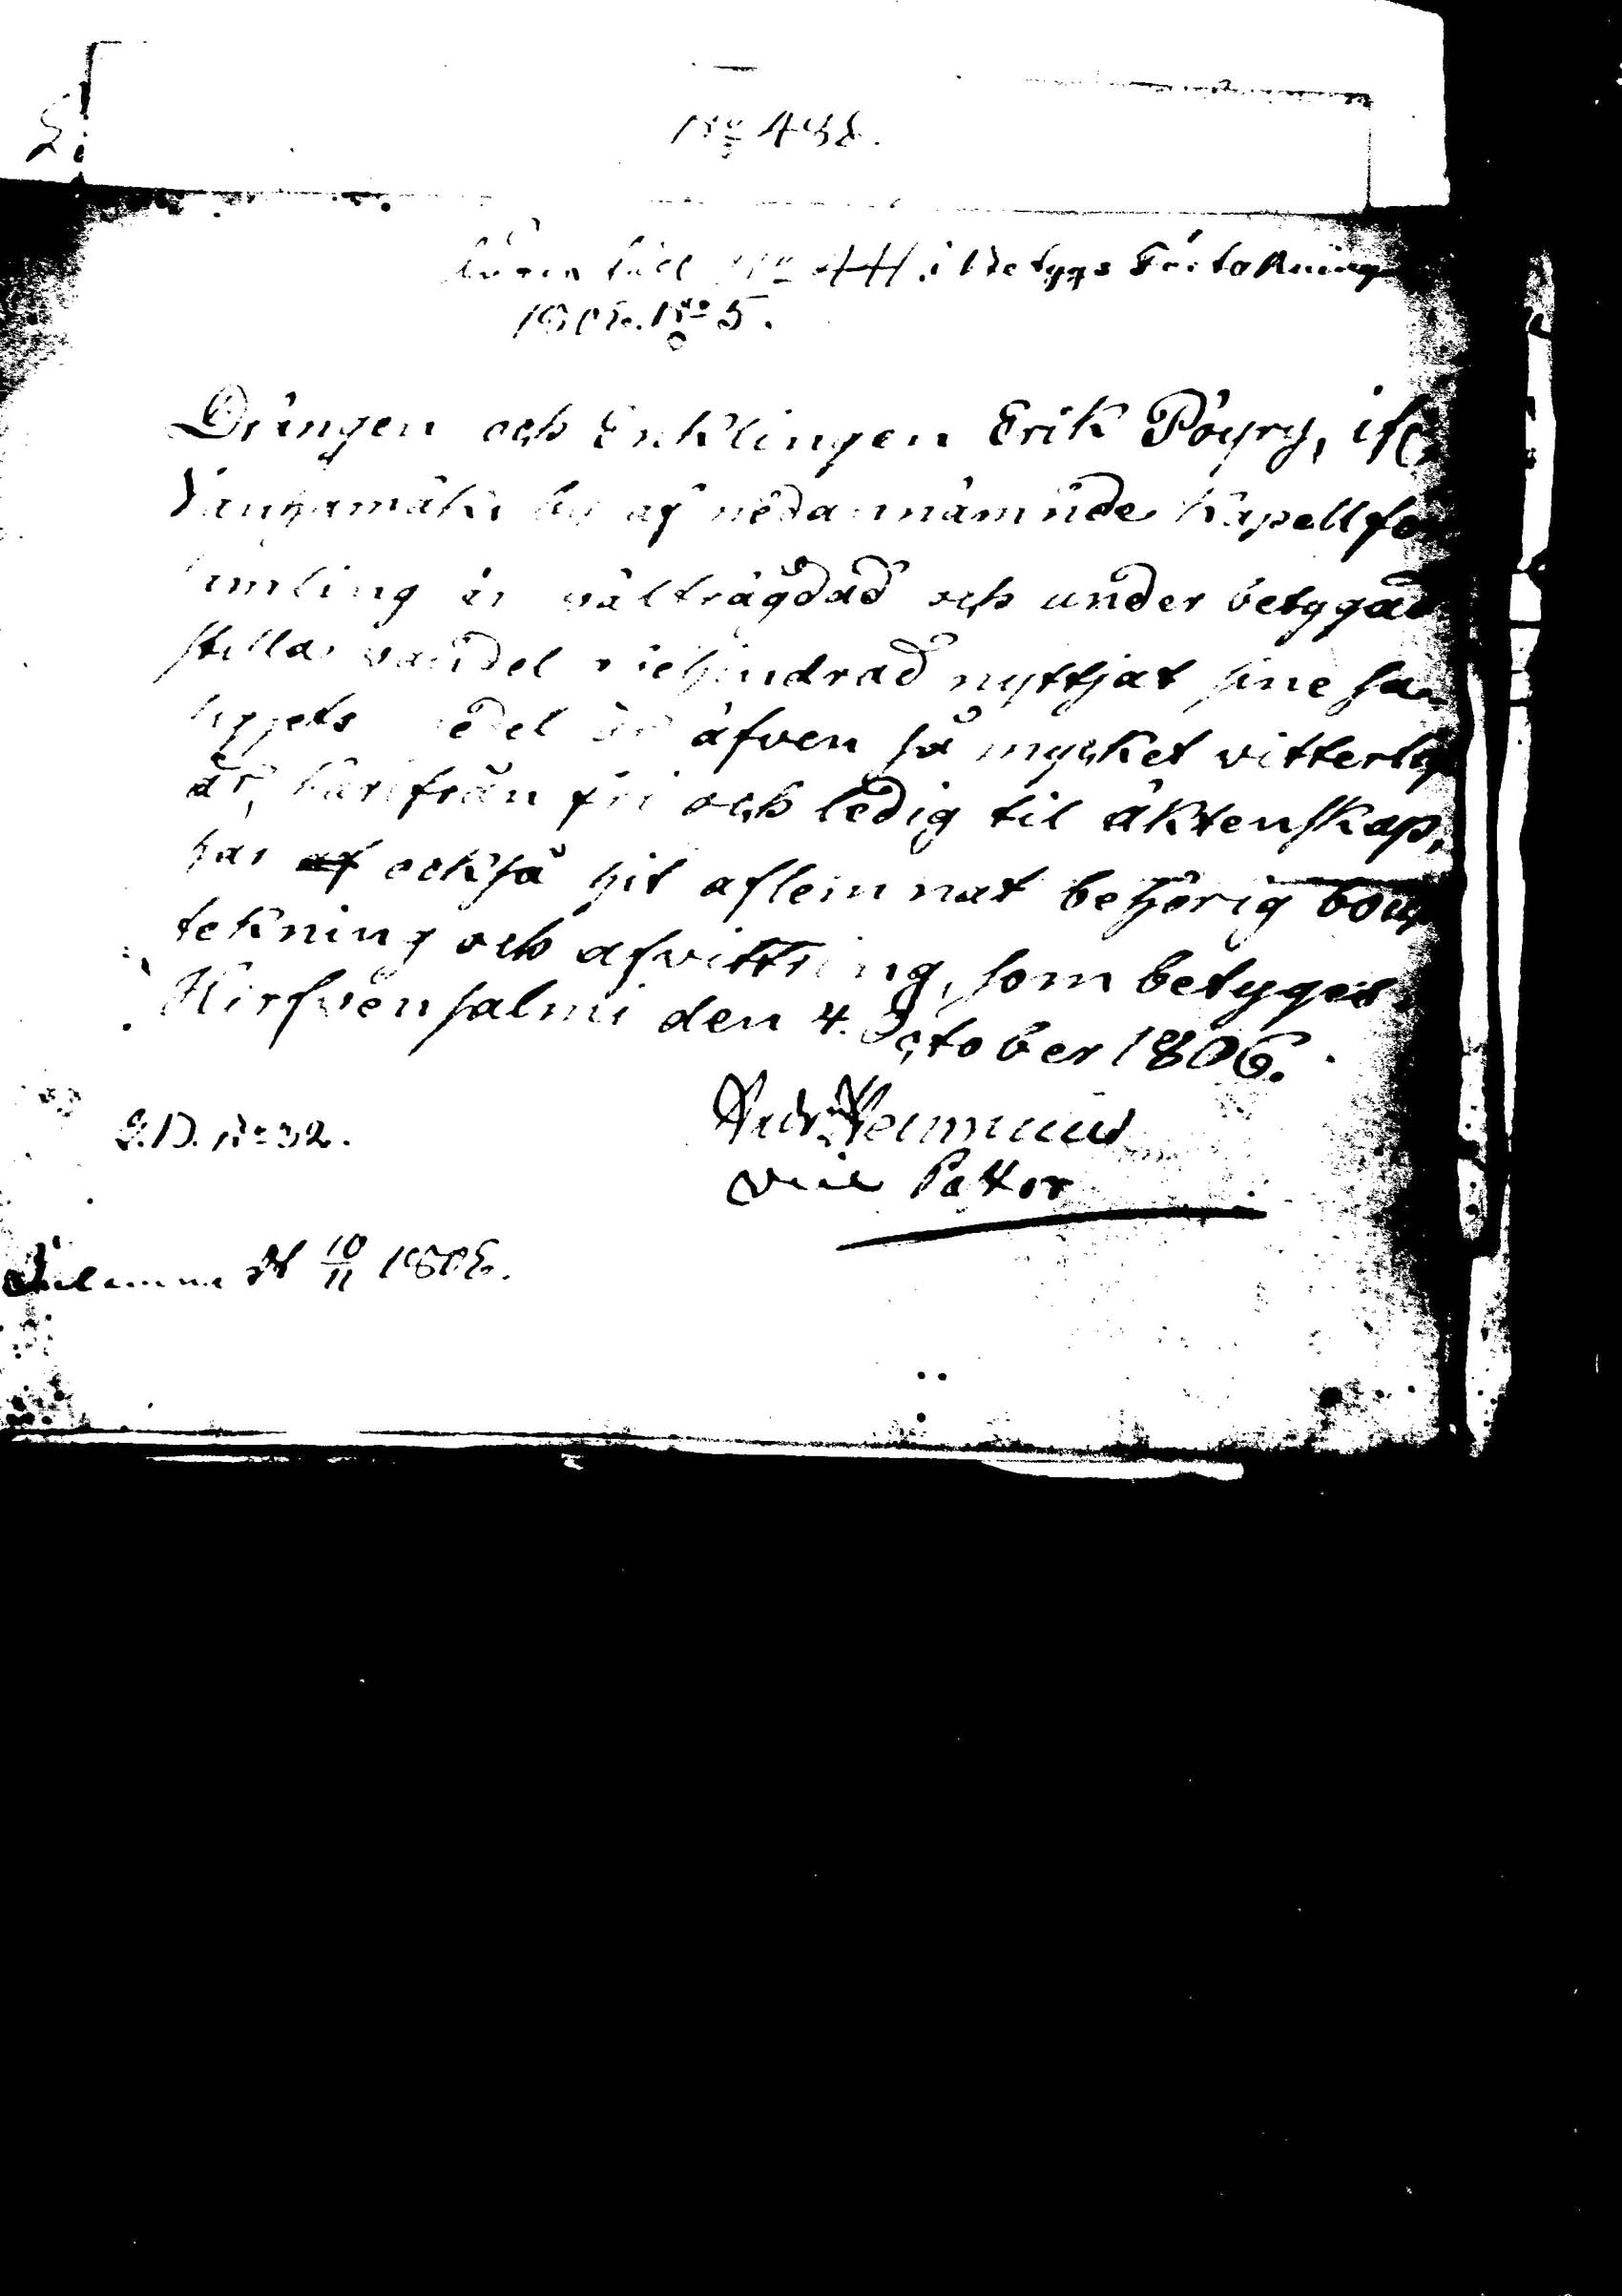 N:o 438.
till N:o 441. i Betygs Förtekning
1806. N:o 5.
Drängen och Enklingen Erik Pöyry, ifr.
Vanhamäki by af nedannämnde Kapellfö
samling är välfrägdad och under betygad
stilla vandel ohehindrad nyttjat sine sa
äfven så mycket vitterlig
är, härifrån fri och ledig til äktenskap,
har också hit aflemnat behörig boup
tekning och afvittring, som betygas
Hirfvensalmi den 4. October 1806.
And. Heinricius
Vice Pastor
L.D. N:o 32.
10/11 1806.